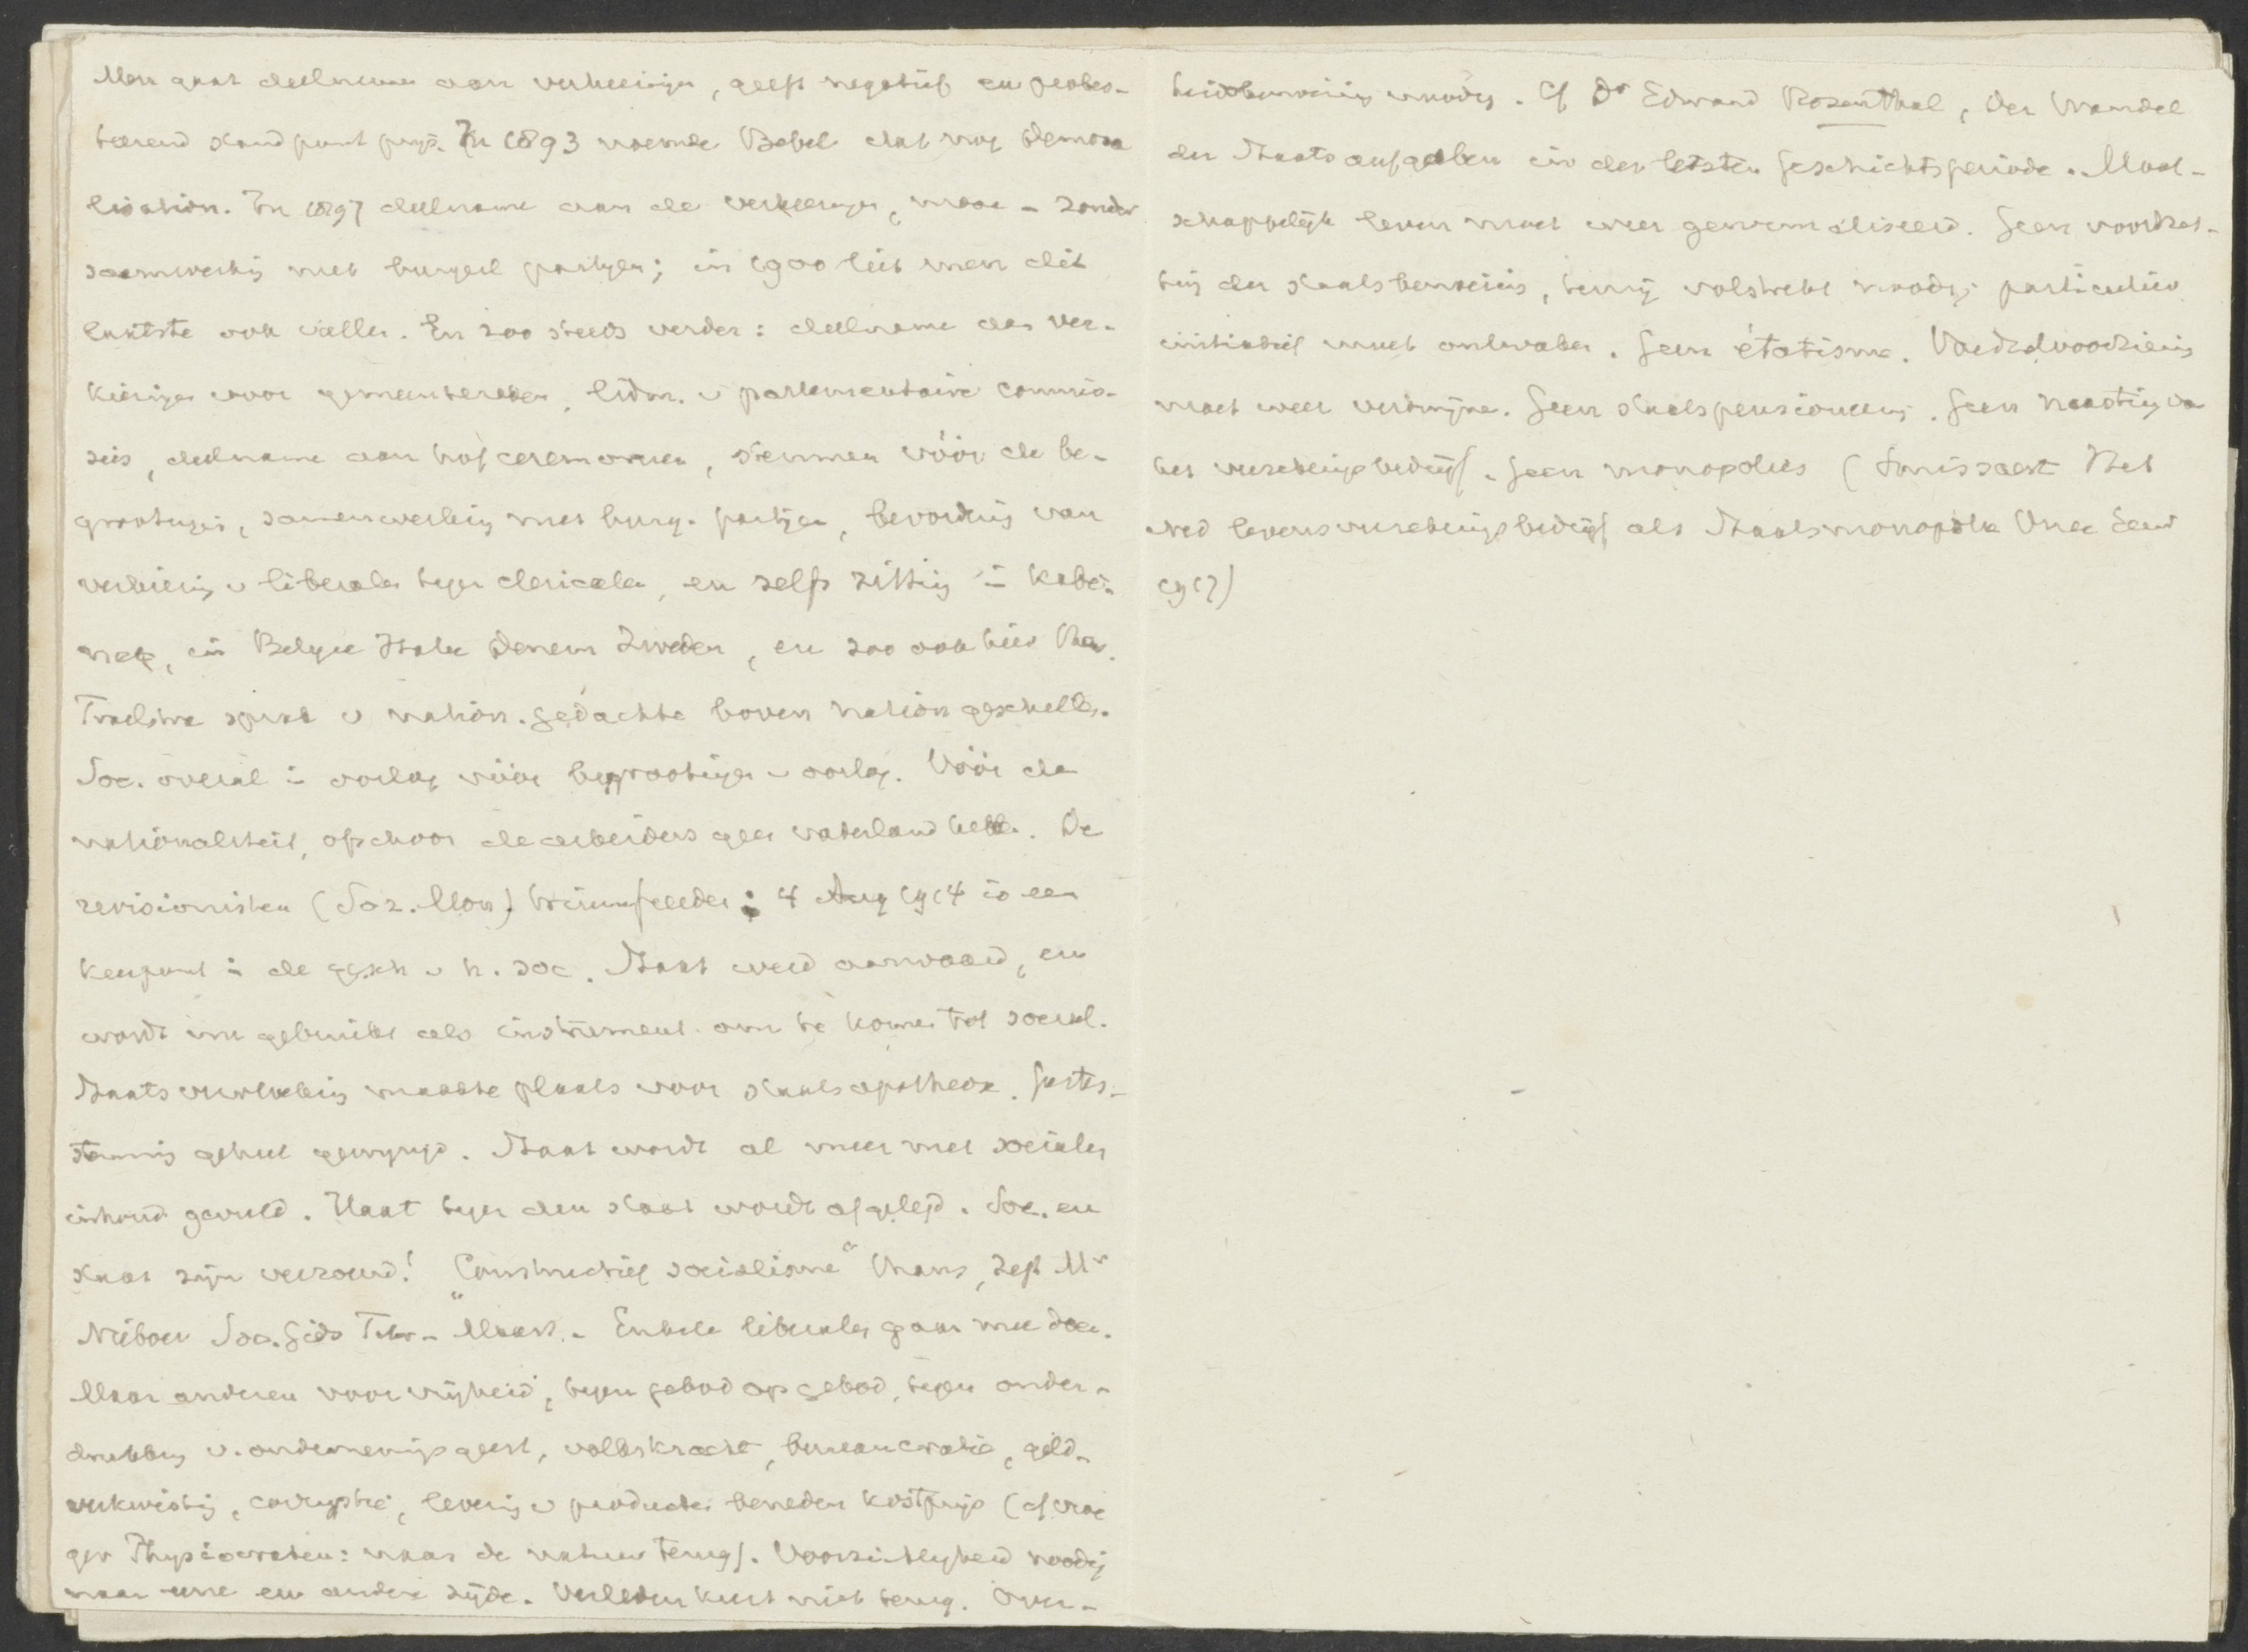 Men gaat deelnemen aan verkiezingen, geeft negatief en protes-
teerend standpunt prijs. In 1893 noemde Bebel dat nog Demora
lisation. In 1897 deelname aan de verkiezingen, maar - zonder
saamwerking met burgerl partijen; in 1900 liet men dit
laatste ook vallen. En zoo steeds verder: deelname aan ver-
kiezingen voor gemeenteraden, lidm. v parlementaire commis-
sies, deelname aan hofceremoniën, stemmen vóór de be-
grootingen, samenwerking met burg. partijen, bevordering van
verkiezing v liberalen tegen clericalen, en zelfs zitting in kabi-
net, in Belgie Italie Denem Zweden, en zoo ook hier
Troelstra spreekt v nation. gedachte boven nation geschillen.
Soc. overal in oorlog vóór begrootingen v oorlog. Vóór de
nationaliteit, ofschoon de arbeiders geen vaderland hebben. De
revisionisten (Soz. Mon) triumfeerden; 4 Aug 1914 is een
keerpunt in de gesch v h. soc. Staat werd aanvaard, en
wordt nu gebruikt als instrument om te komen tot social.
Staatsverwerping maakte plaats voor staatsapotheose. Gestes-
temming geheel gewijzigd. Staat wordt al meer met socialen
inhoud gevuld. Haat tegen den staat wordt afgelegd. Soc. en
staat zijn verzoend! "Constructief socialisme" thans, zegt Mr
Nieboer Soc. Gids Febr - Maart. - Enkele liberalen gaan mee doen.
Maar anderen voor vrijheid, tegen gebod op gebod, tegen onder-
drukking v. ondernemingsgeest, volkskracht, bureaucratie, geld-
verkwisting, corruptie, levering v producten beneden kostprijs (cf vroe
ger Physiocraten: naar de natuur terug). Voorzichtigheid noodig
naar eene en andere zijde. Verleden keert niet terug. Over-
heidsbemoeiing noodig. Cf Dr Edward Rosenthal, Der Wandel
der Staatsaufgaben in der letzten Geschichtsperiode. Maat-
schappelijk leven moet weer genormaliseerd. Geen voortzet-
ting der staatsbemoeiing, tenzij volstrekt noodig; particulier
initiatief moet ontwaken. Geen étatisme. Voedselvoorziening
moet weer verdwijnen. Geen staatspensioneering. Geen naasting van
het verzekeringsbedrijf. Geen monopolies (Smissaert Het
Ned levensverzekeringsbedrijf als Staatsmonopolie Vrag Eeuw
1917)